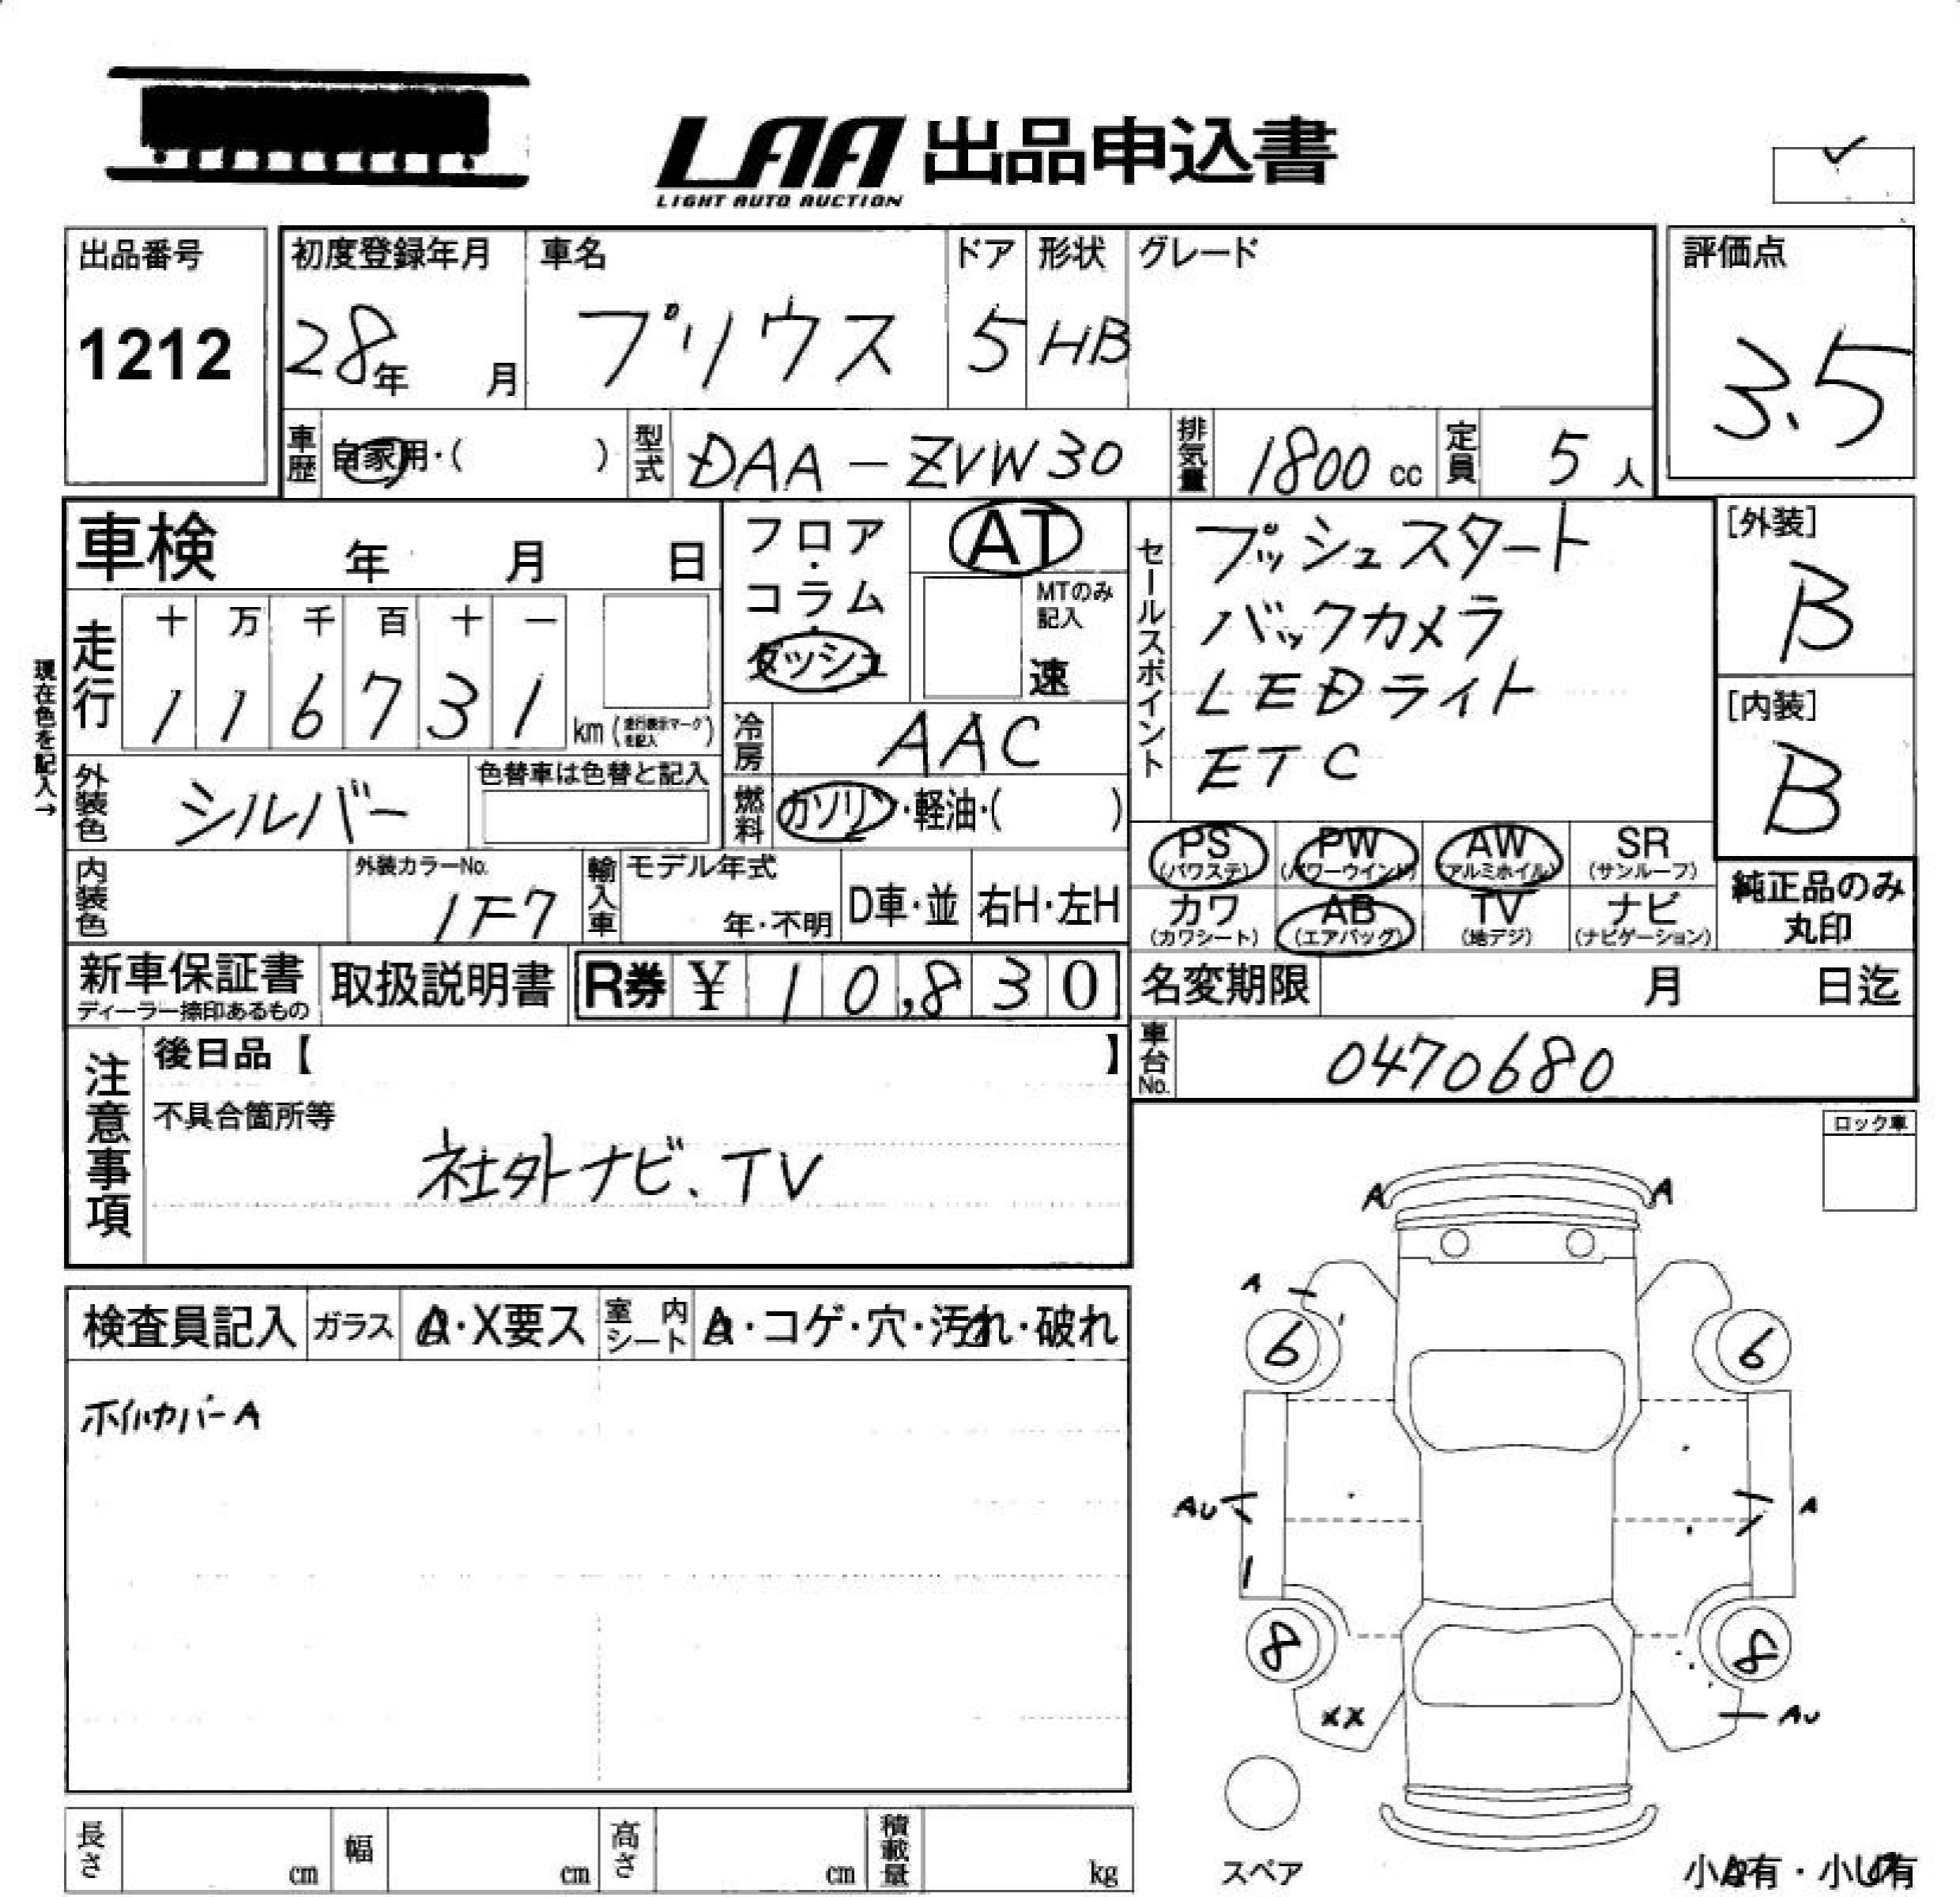 LAA 出品申込書
LIGHT AUTO AUCTION
出品番号
1212
初度登録年月
28年 月
車名
プリウス
ドア
5
形状
HB
グレード
評価点
3.5
車歴 自家用・( )
型式 DAA-ZVW30
排気量 1800 cc
定員 5 人
車検 年 月 日
フロア・コラム・ダッシュ
AT
MTのみ記入
速
セールスポイント
プッシュスタート
バックカメラ
LEDライト
ETC
[外装]
B
[内装]
B
現在色を記入→
走行
十 万 千 百 十 一
1 1 6 7 3 1 km (走行表示マークを記入)
冷房 AAC
外装色 シルバー
色替車は色替と記入
燃料 ガソリン・軽油・( )
PS (パワステ)
PW (パワーウインド)
AW (アルミホイル)
SR (サンルーフ)
カワ (カワシート)
AB (エアバッグ)
TV (地デジ)
ナビ (ナビゲーション)
純正品のみ丸印
内装色
外装カラーNo.
1F7
輸入車
モデル年式
年・不明
D車・並
右H・左H
新車保証書
ディーラー捺印あるもの
取扱説明書
R券 ¥ 10,830
名変期限 月 日迄
車台No. 0470680
注意事項
後日品【 】
不具合箇所等
社外ナビ、TV
ロック車
検査員記入
ガラス
・X要ス
室内シート
・コゲ・穴・汚れ・破れ
ホイルカバーA
A A
A
6 6
AU A
8 8
XX AU
スペア
長さ cm
幅 cm
高さ cm
積載量 kg
小A有・小U有